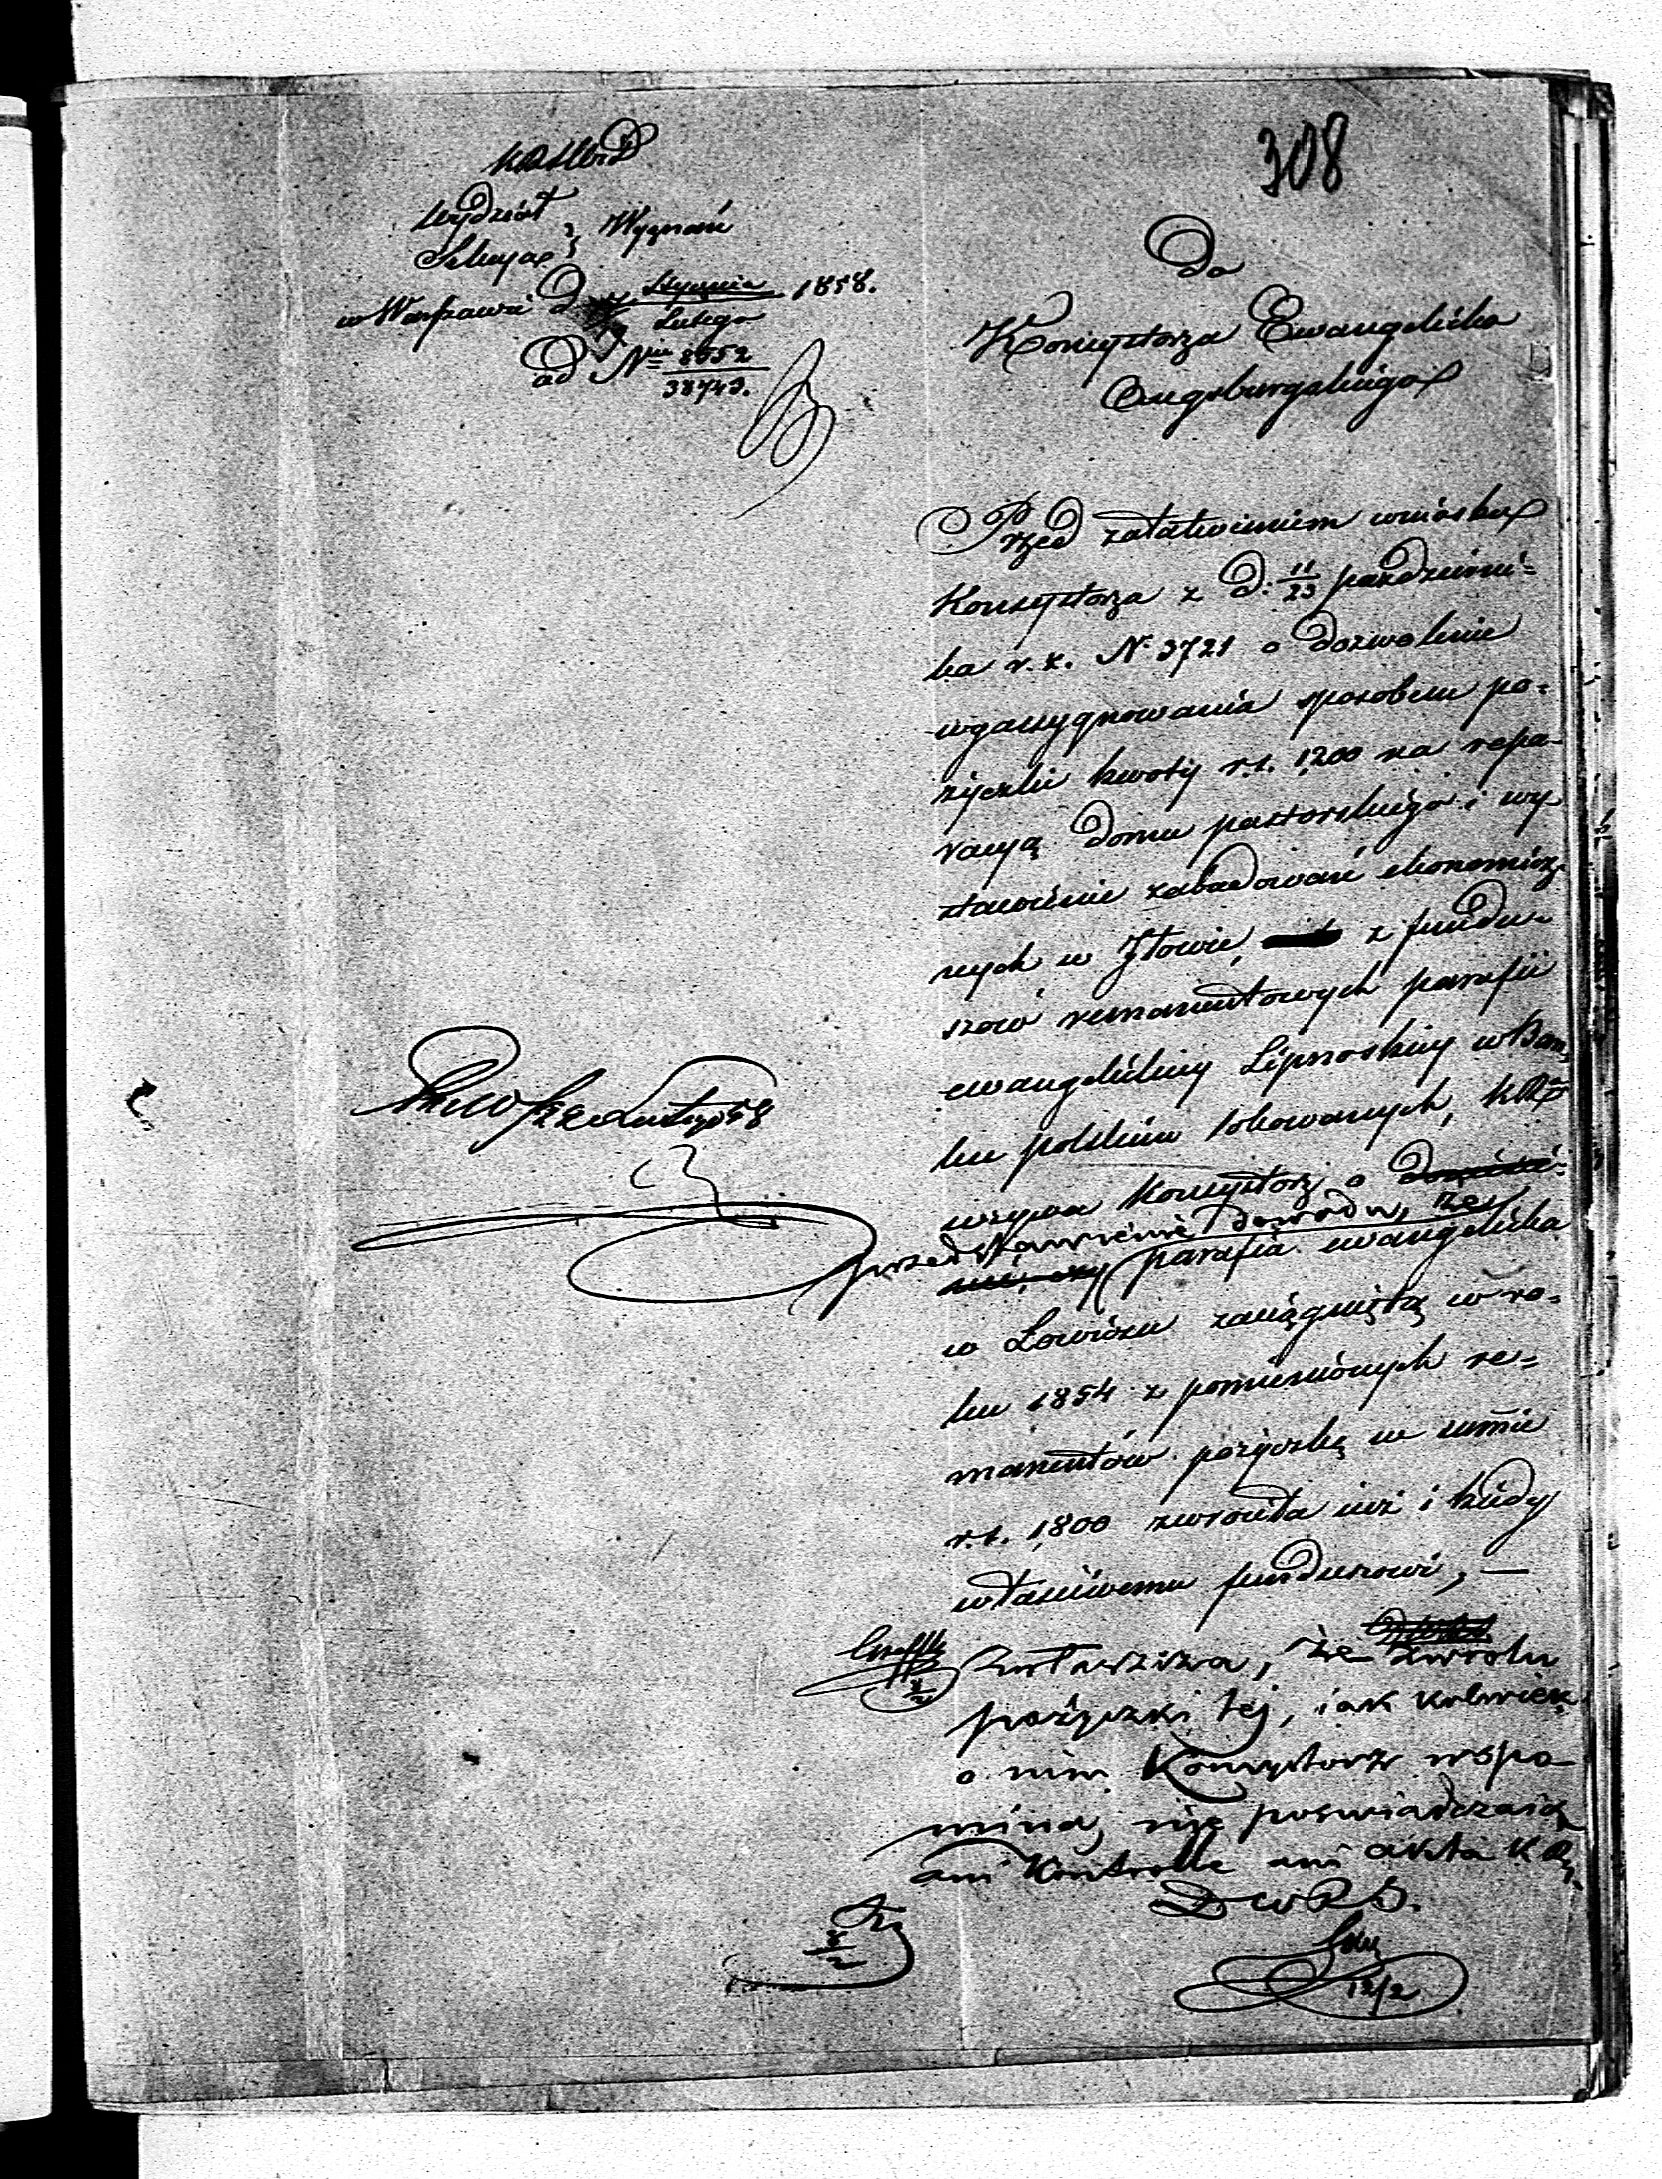 308
Wydział
Sekcya Wyznań
w Warszawie d. Stycznia 1858.
Lutego
ad Nr 8052
38743.
Do
Konsystorza Ewangelicko
Augsburgskiego
Przed załatwieniem wniosku
Konsystorza z d. 11/23 październi=
ka r. z. N. 3721 o dozwolenie
wyassygnowania sposobem po=
życzki kwoty r. s. 1200 na repa-
racyą domu pastorskiego i wy
stawienie zabudowań ekonomicz
nych w Iłowie, z fundu-
szów remanentowych parafii
ewangelickiej Lipnoskiej w Ban
ku polskim lokowanych, KR
wzywa Konsystorz o
przedstawienie dowodu, że
parafia ewangelicka
w Łowiczu zaciągniętą w ro=
ku 1854 z pomienionych re=
manentów pożyczkę w summie
r. s. 1,800 zwróciła już i kiedy
właściwemu funduszowi, —
zwłaszcza, że zwrotu
pożyczki tej, jak kolwiek
o nim Konsystorz wspo-
mina, nie poświadczają
ani Kontrolle ani akta K R
D W R D.
12/2